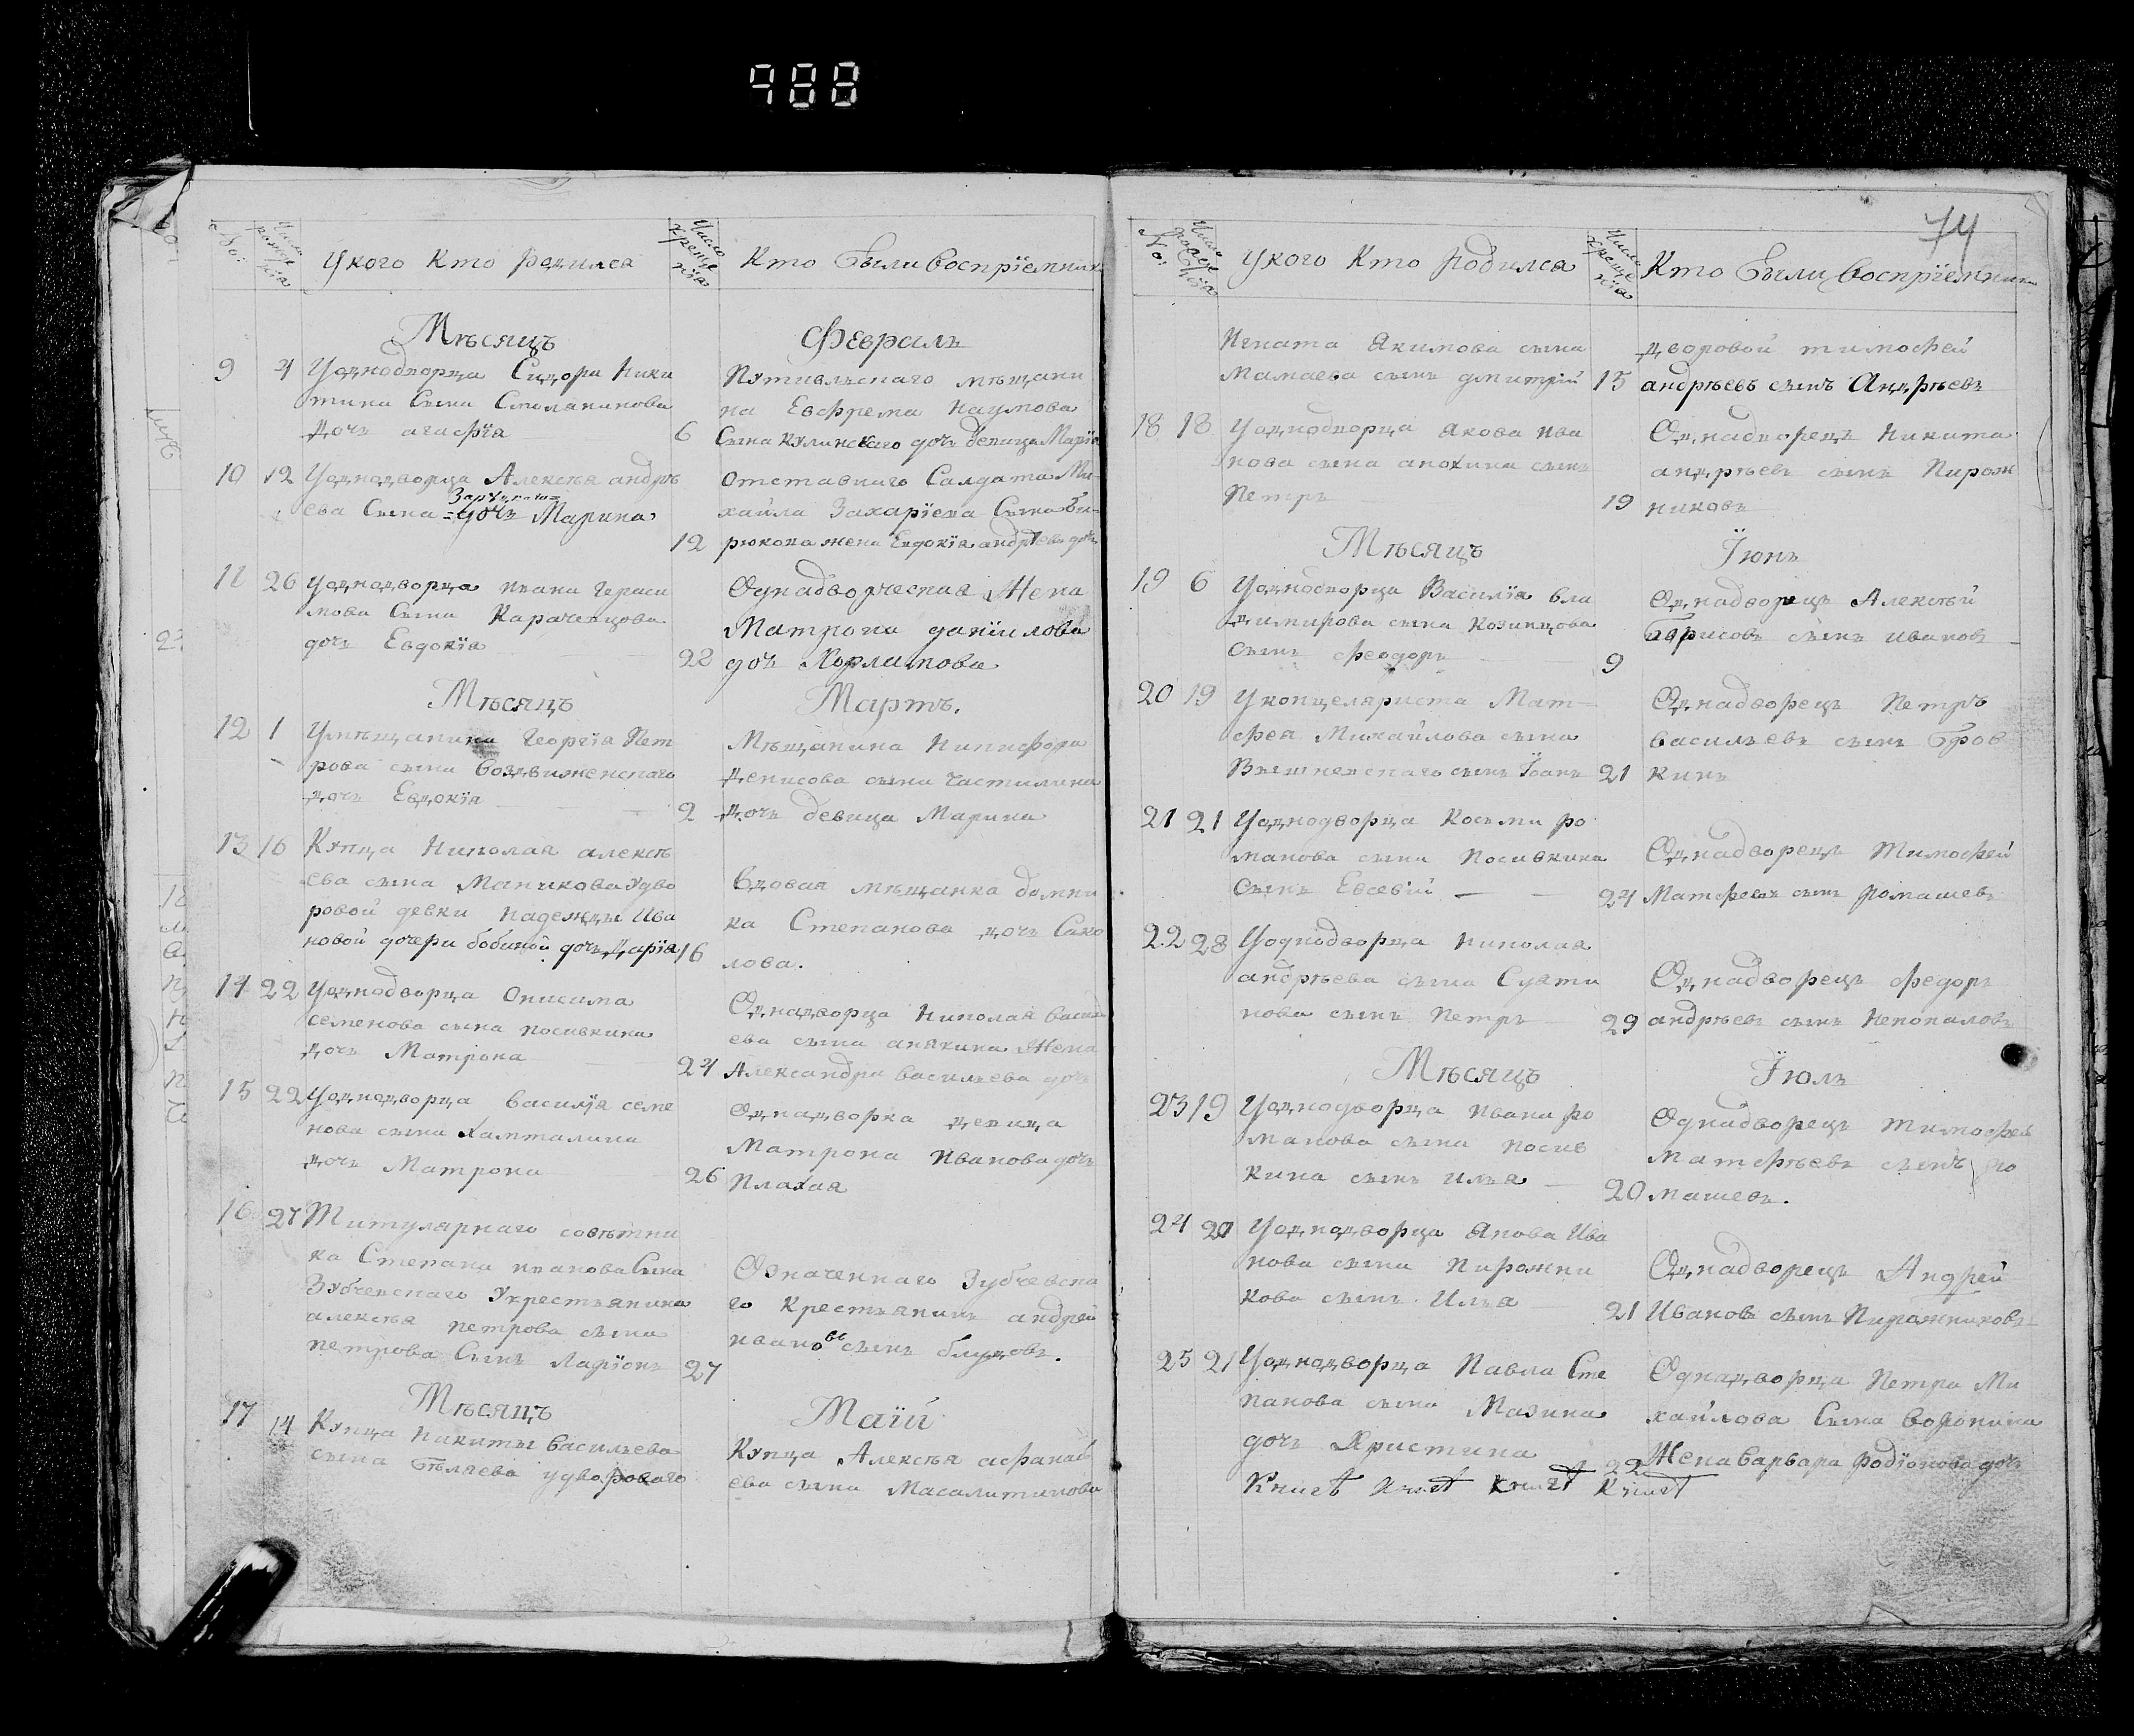 988
74
No:
Число рожде нія
у кого Кто родился
Число креще нія
Кто были воспріемник
Мѣсяцъ Февраль
9 4 У однодворца Сидора Ники
тина сына
дочь агафія
Путивльскаго мѣщани
на Евфрема Наумова
6 сына Кулинскаго дочь девица Марія
10 12 У однодворца Алексѣя андрѣ
ева сына дочь Марина
отставнаго Салдата Ми-
хайла Захаріева сына Би-
12 рюкова жена Евдокіа андрѣева дочь
11 26 у однодворца ивана Гераси
мова сына Карачевцова
дочь Евдокіа
Однадворческая Жена
Матрона даніилова
28 дочь
Мѣсяцъ Мартъ.
12 1 У мѣщанина Георгіа Пет
рова сына воздвиженскаго
дочь Евдокіа
Мѣщанина Никифора
Денисова сына Частилина
2 дочь девица Марина
13 16 Купца Николая алексѣ
ева сына Маликова у дво
ровой девки надежды Ива
новой дочери бобиной дочь Дарія
Вдовая мѣщанка домни
ка Степанова дочь Сако
16 лова.
14 22 У однодворца Онисима
семенова сына посивкина
дочь Матрона
Однадворца Николая василь
ева сына анякина Жена
24 Александра васильева дочь
15 22 У однодворца василія семе
нова сына Хамталина
дочь Матрона
однадворка девица
Матрона Иванова дочь
26 Плахая
16 27 Титулярнаго совѣтни
ка Степана иванова сына
Зубчевскаго У крестьянина
алексѣя петрова сына
петрова сынъ Ларіонъ
Означеннаго Зубчевска
го крестьянинъ андрей
27 ивановъ сынъ блудовъ.
Мѣсяцъ Маій
17 14 Купца никиты васильева
сына Бѣляева у двороваго
Купца Алексѣя афанась
ева сына Масалитинова
No:
Число рожде нія
у кого Кто родился
Число креще нія
Кто были воспріемники
Игната Якимова сына
Мамаева сынъ дмитрій
дворовой тимофей
15 андрѣевъ сынъ Андрѣевъ
18 18 У однодворца Якова ива
нова сына анохина сынъ
Петръ
Однадворецъ Никита
андрѣевъ сынъ Пирож
19 никовъ
Мѣсяцъ Іюнь
19 6 У однодворца Василіа вла
димирова сына Козинцова
сынъ феодоръ
Однадворецъ Алексѣй
Борисовъ сынъ ивановъ
9
20 19 У концеляриста Мат-
фея Михайлова сына
Вишневскаго сынъ Іоанъ
Однадворецъ Петръ
васильевъ сынъ Бров
21 кинъ
21 21 У однодворца Косьми ро
манова сына посивкина
сынъ Евсевій
Однадворецъ Тимофей
24 Матфеевъ сынъ ромашевъ
22 28 У однодворца николая
андрѣева сына Суяти
нова сынъ Петръ
Однадворецъ федоръ
29 андрѣевъ сынъ Непопаловъ
Мѣсяцъ Іюль
23 19 У однодворца ивана ро
манова сына посив
кина сынъ илья
Однадворецъ тимофей
Матфѣевъ сынъ ро
20 машевъ.
24 20 У однодворца Якова Ива
нова сына Пирожни
кова сынъ Илья
Однадворецъ Андрей
21 Ивановъ сынъ Пирожниковъ
25 21 У однодворца Павла Сте
панова сына Мазина
дочь Христина
Однадворца Петра Ми
хайлова сына воронина
22 Жена варвара родіонова дочь
Книгѣ